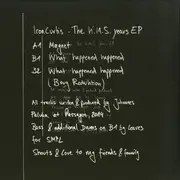 IronCurtis - The H.M.S. years EP
A1 Magnet
B1 What happened happened
B2 What happened happened
(Borg Revolution)
All tracks written & produced by Johannes
Paluka at Messager, 2009
Bass & additional Drums on B1 by Leaves
for SMPL
Shouts & Love to my friends & family